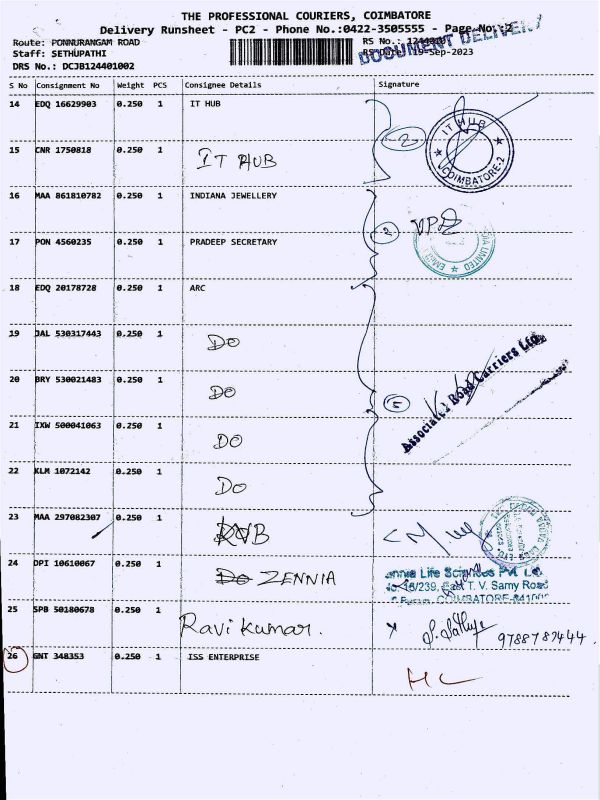 THE PROFESSIONAL COURIERS, COIMBATORE
Delivery Runsheet - PC2 - Phone No.:0422-3505555 - Page No.:2
DOCUMENT DELIVERY
Route: PONNURANGAM ROAD
RS No.:
Staff: SETHUPATHI
RS Date: 19-Sep-2023
DRS No.: DCJB124401002
S No Consignment No Weight PCS Consignee Details Signature
14 EDQ 16629903 0.250 1 IT HUB
2
IT HUB
COIMBATORE-2
15 CNR 1750818 0.250 1 IT HUB
16 MAA 861810782 0.250 1 INDIANA JEWELLERY
17 PON 4560235 0.250 1 PRADEEP SECRETARY
LIMITED
18 EDQ 20178728 0.250 1 ARC
19 JAL 530317443 0.250 1 DO
Associated Road Carriers Ltd.
20 BRY 530021483 0.250 1 DO
5
21 IXW 500041063 0.250 1 DO
22 KLM 1072142 0.250 1 DO
23 MAA 297082307 0.250 1
24 DPI 10610067 0.250 1 DO ZENNIA
Life Sciences Pvt
/239, East T. V. Samy Road
COIMBATORE
25 SPB 50180678 0.250 1 Ravi Kumar.
9788787444.
26 GNT 348353 0.250 1 ISS ENTERPRISE
HC